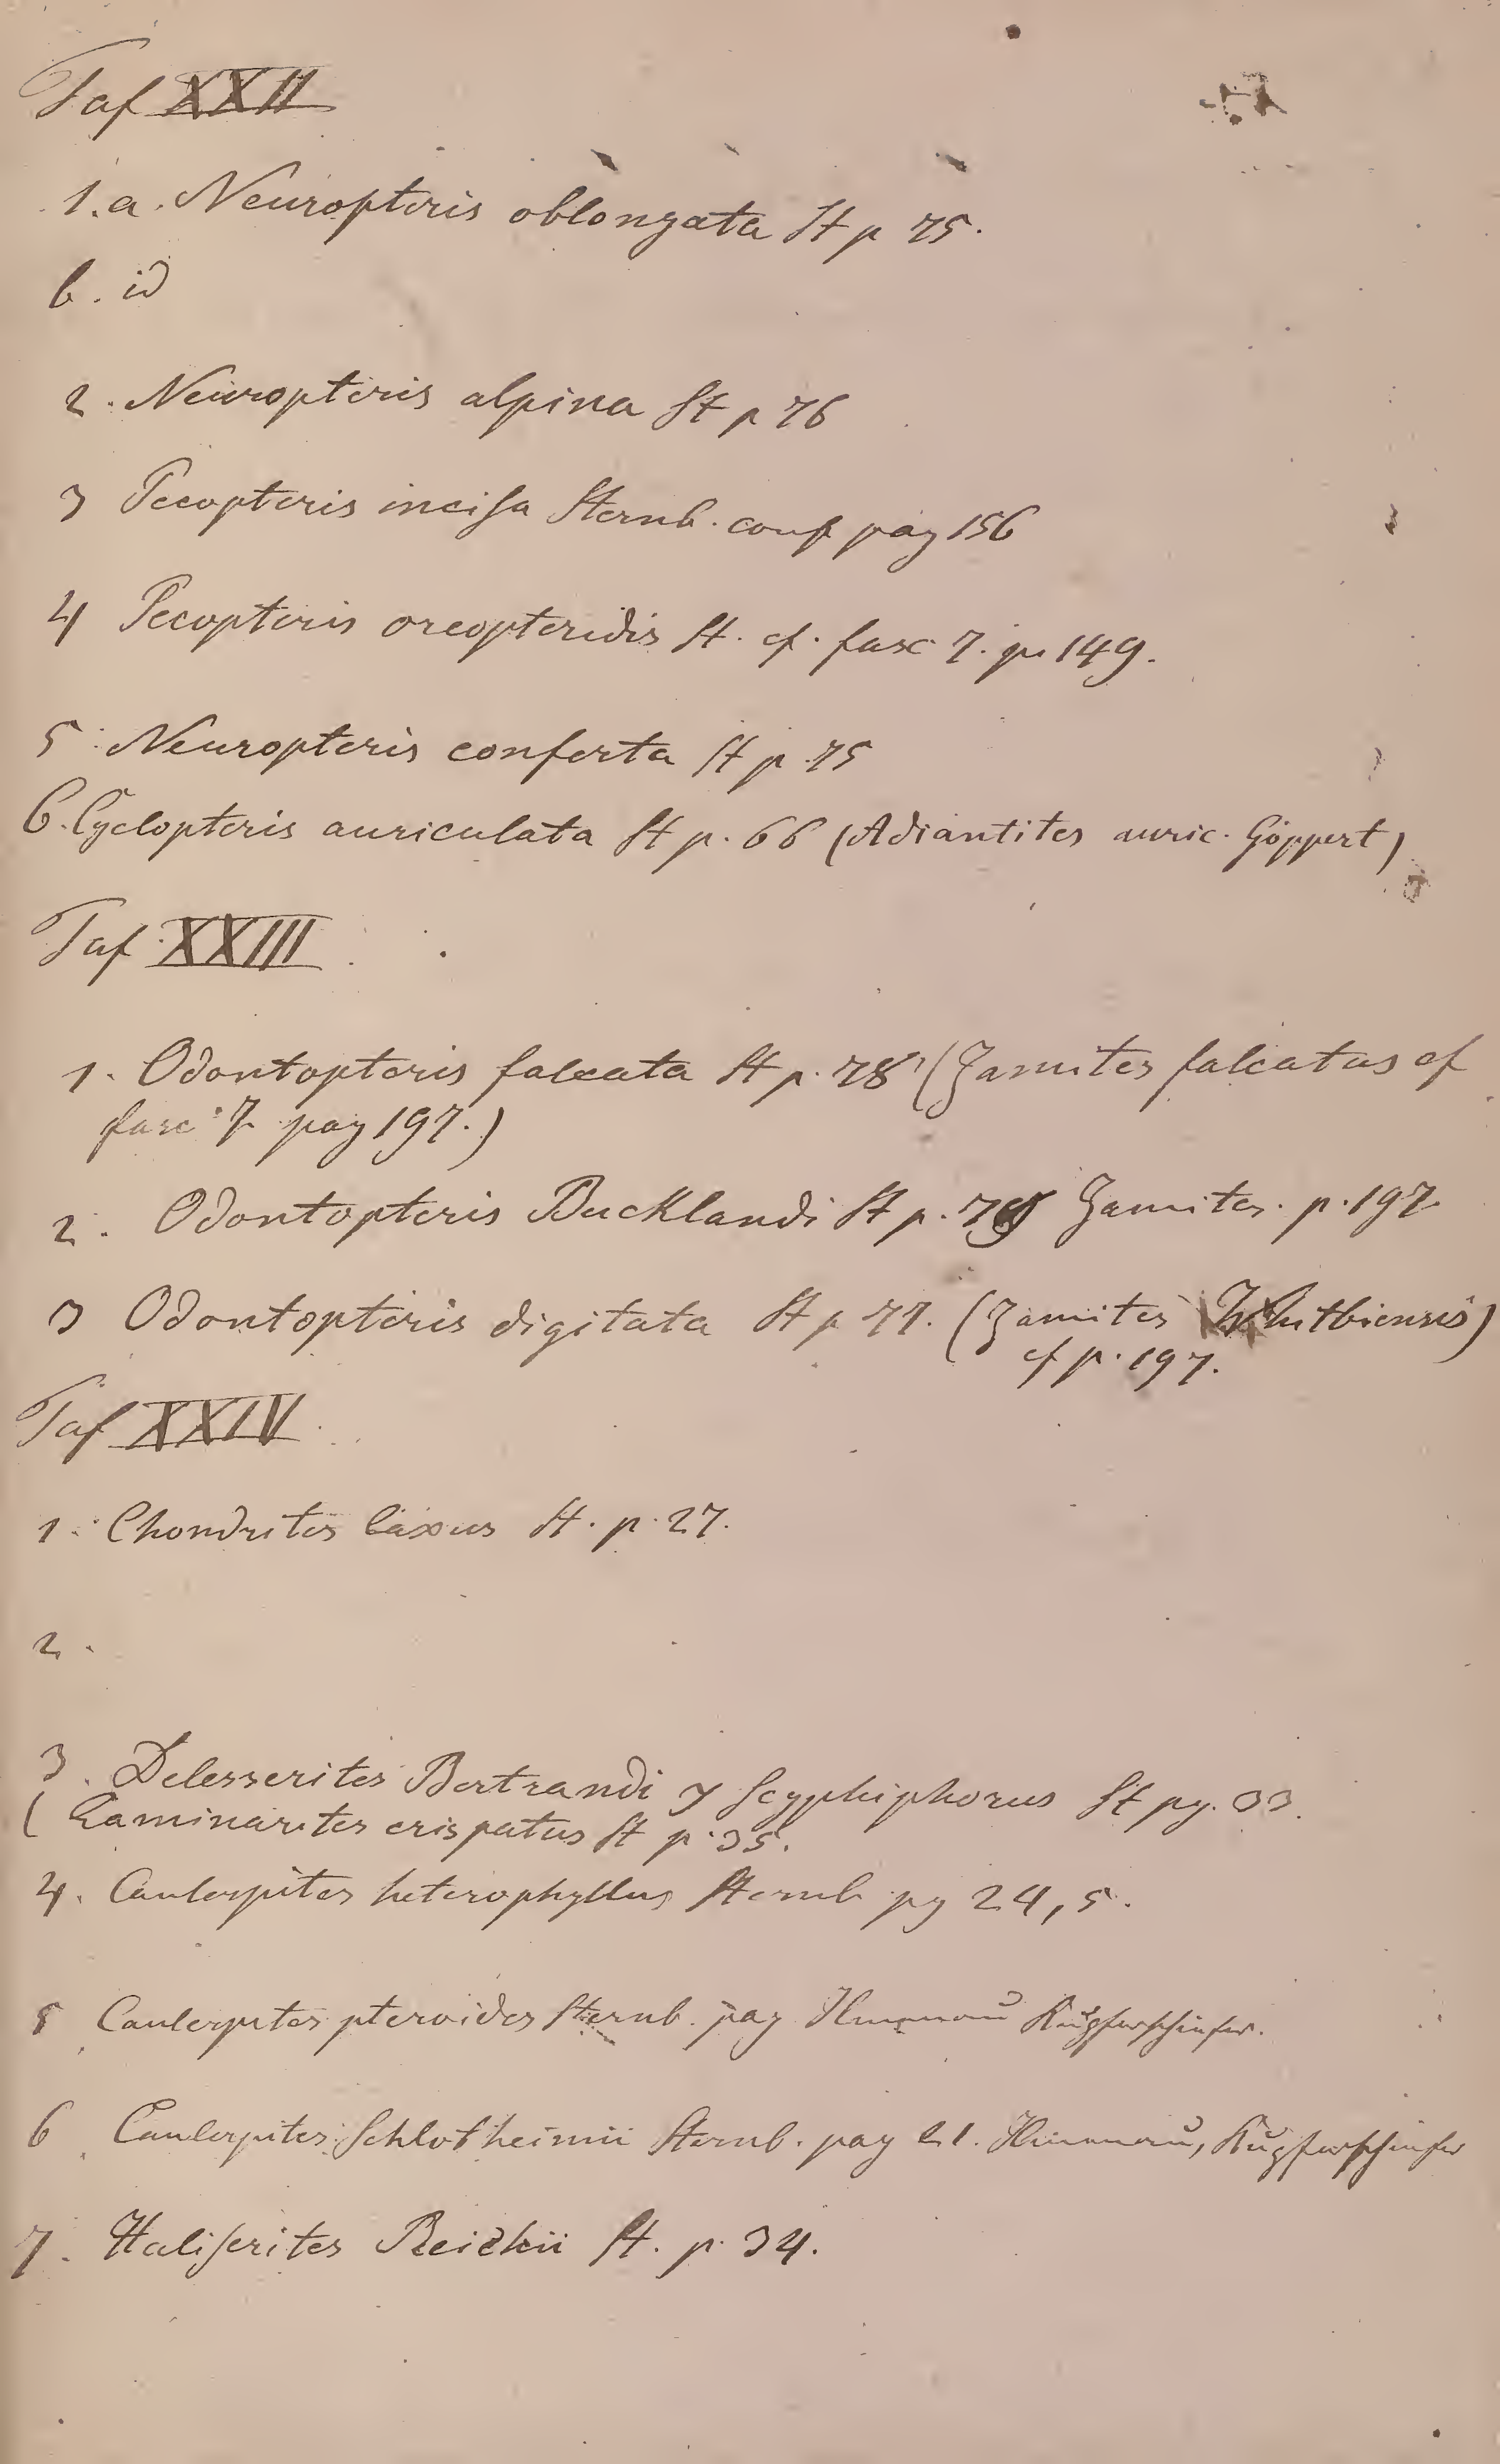 Taf XXII
1.a. Neuropteris oblongata St p 75.
b. id
2. Neuropteris alpina St p 76
3 Pecopteris incisa Sternb. conf pag 156
4 Pecopteris oreopteridis St. cf. fasc 7. p 149.
5 Neuropteris conferta St p 75
6. Cyclopteris auriculata St p. 66 (Adiantites auric. Göppert)
Taf XXIII
1. Odontopteris falcata St p. 78 (Zamites falcatus cf
fasc 7 pag 197.)
2. Odontopteris Bucklandi St p. Zamites. p. 197
3 Odontopteris digitata St p 77. (Zamites Whitbiensis)
cf p. 197.
Taf XXIV
1. Chondrites laxus St. p. 27.
2.
3. Delesserites Bertrandi γ Scyphiphorus St pg. 33.
( Laminarites crispatus St p. 35.
4. Caulerpites heterophyllus Sternb pg 24,5.
5 Caulerpites pteroides Sternb. pag Ilmenau Kupferschiefer.
6 Caulerpites Schlotheimii Sternb. pag 21. Ilmenau, Kupferschiefer
7. Haliserites Reichii St. p. 34.